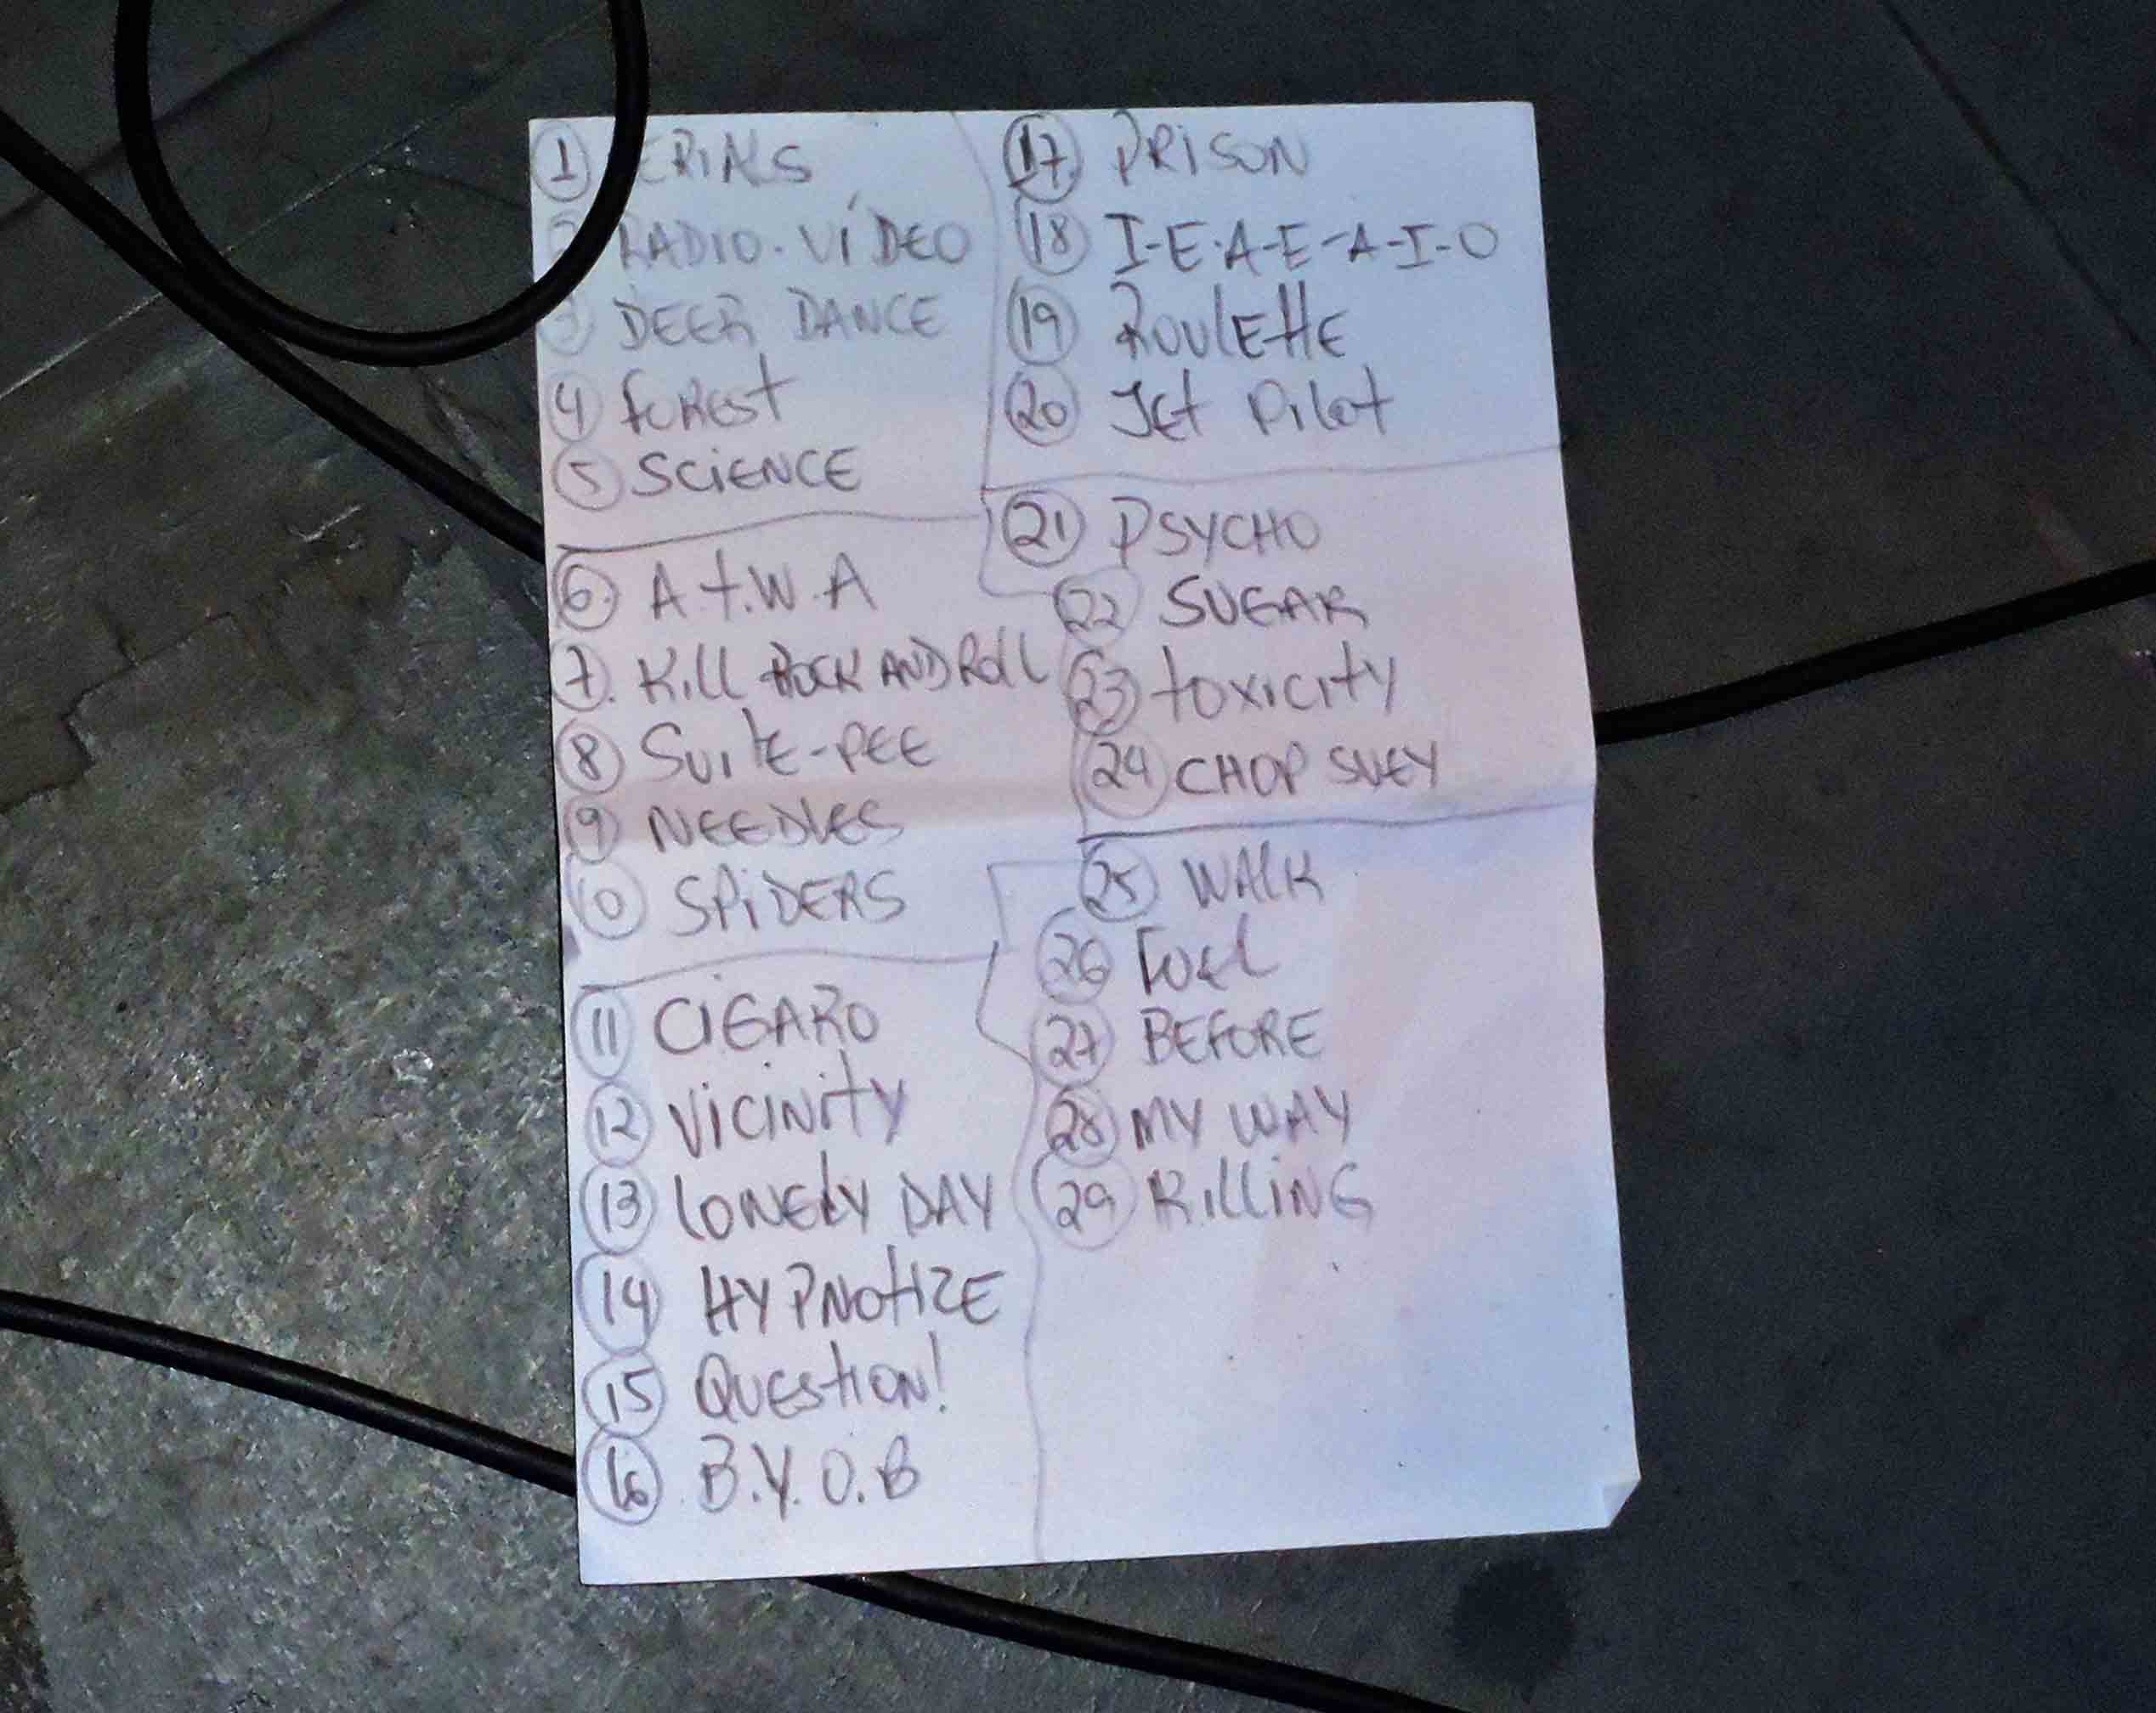 1 ERIALS
2 RADIO-VÍDEO
3 DEER DANCE
4 FOREST
5 SCIENCE
6 A.T.W.A
7. Kill ROCK AND ROLL
8 SUITE-PEE
9 NEEDLES
10 SPIDERS
11 CIGARO
12 VICINITY
13 LONELY DAY
14 HYPNOTIZE
15 QUESTION!
16 B.Y.O.B
17 PRISON
18 I-E-A-E-A-I-O
19 ROULETTE
20 JET PILOT
21 PSYCHO
22 SUGAR
23 TOXICITY
24 CHOP SUEY
25 WALK
26 FUEL
27 BEFORE
28 MY WAY
29 KILLING